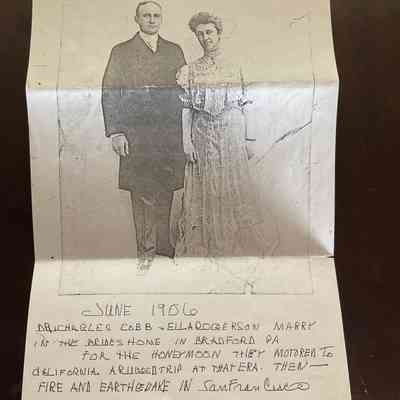 JUNE 1906
DR. CHARLES COBB & ELLA RODGERSON MARRY
IN THE BRIDES HOME IN BRADFORD PA
FOR THE HONEYMOON THEY MOTORED TO
CALIFORNIA A RUGGED TRIP AT THAT ERA. THEN —
FIRE AND EARTHQUAKE IN San Francisco